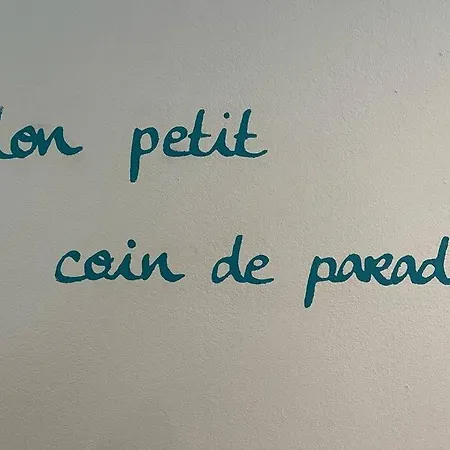 Mon petit
coin de parad